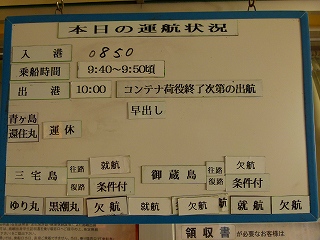 本日の運航状況
入港 0850
乗船時間 9:40～9:50頃
出港 10:00 コンテナ荷役終了次第の出航
早出し
青ヶ島
還住丸 運休
三宅島 往路 就航 御蔵島 往路 欠航
復路 条件付 復路 条件付
ゆり丸 黒潮丸 欠航 就航 欠航 就航 欠航
領収書が必要なお客様は